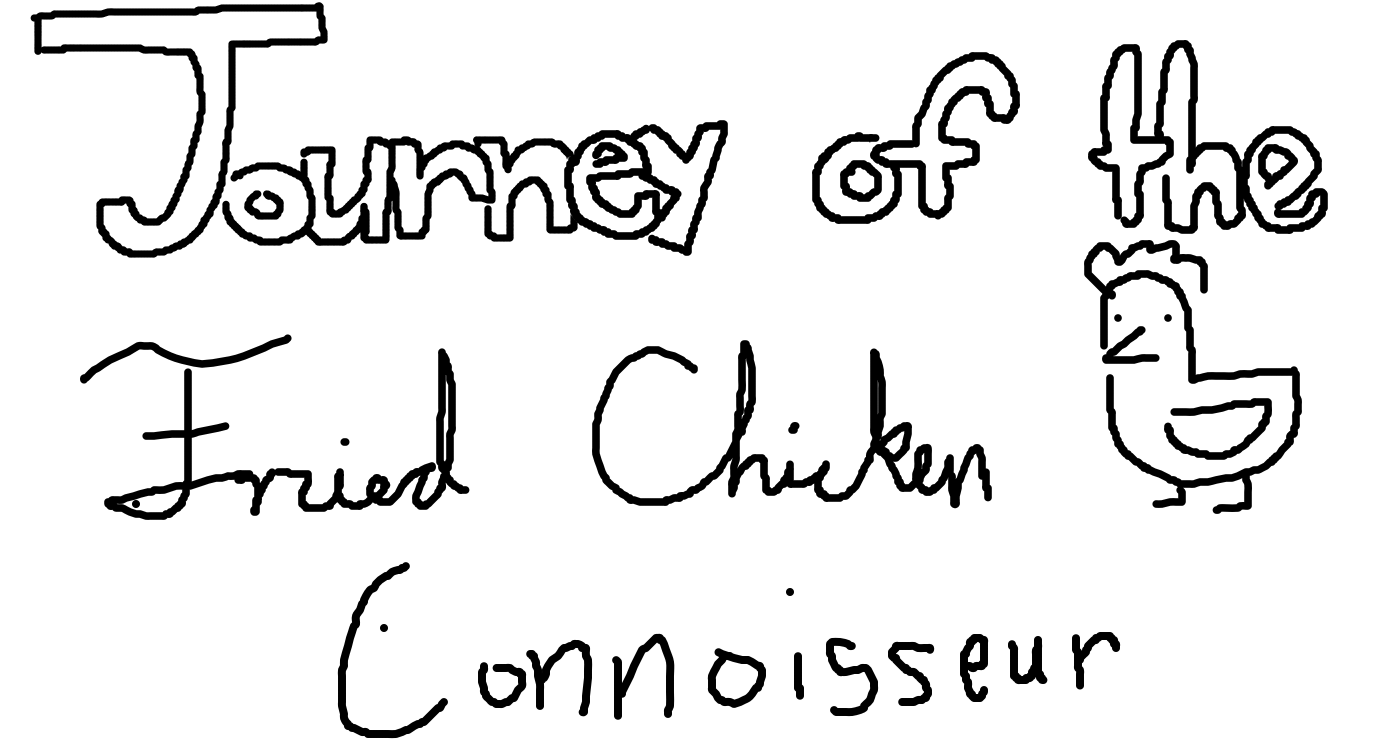 Journey of the
Fried Chicken
Connoisseur